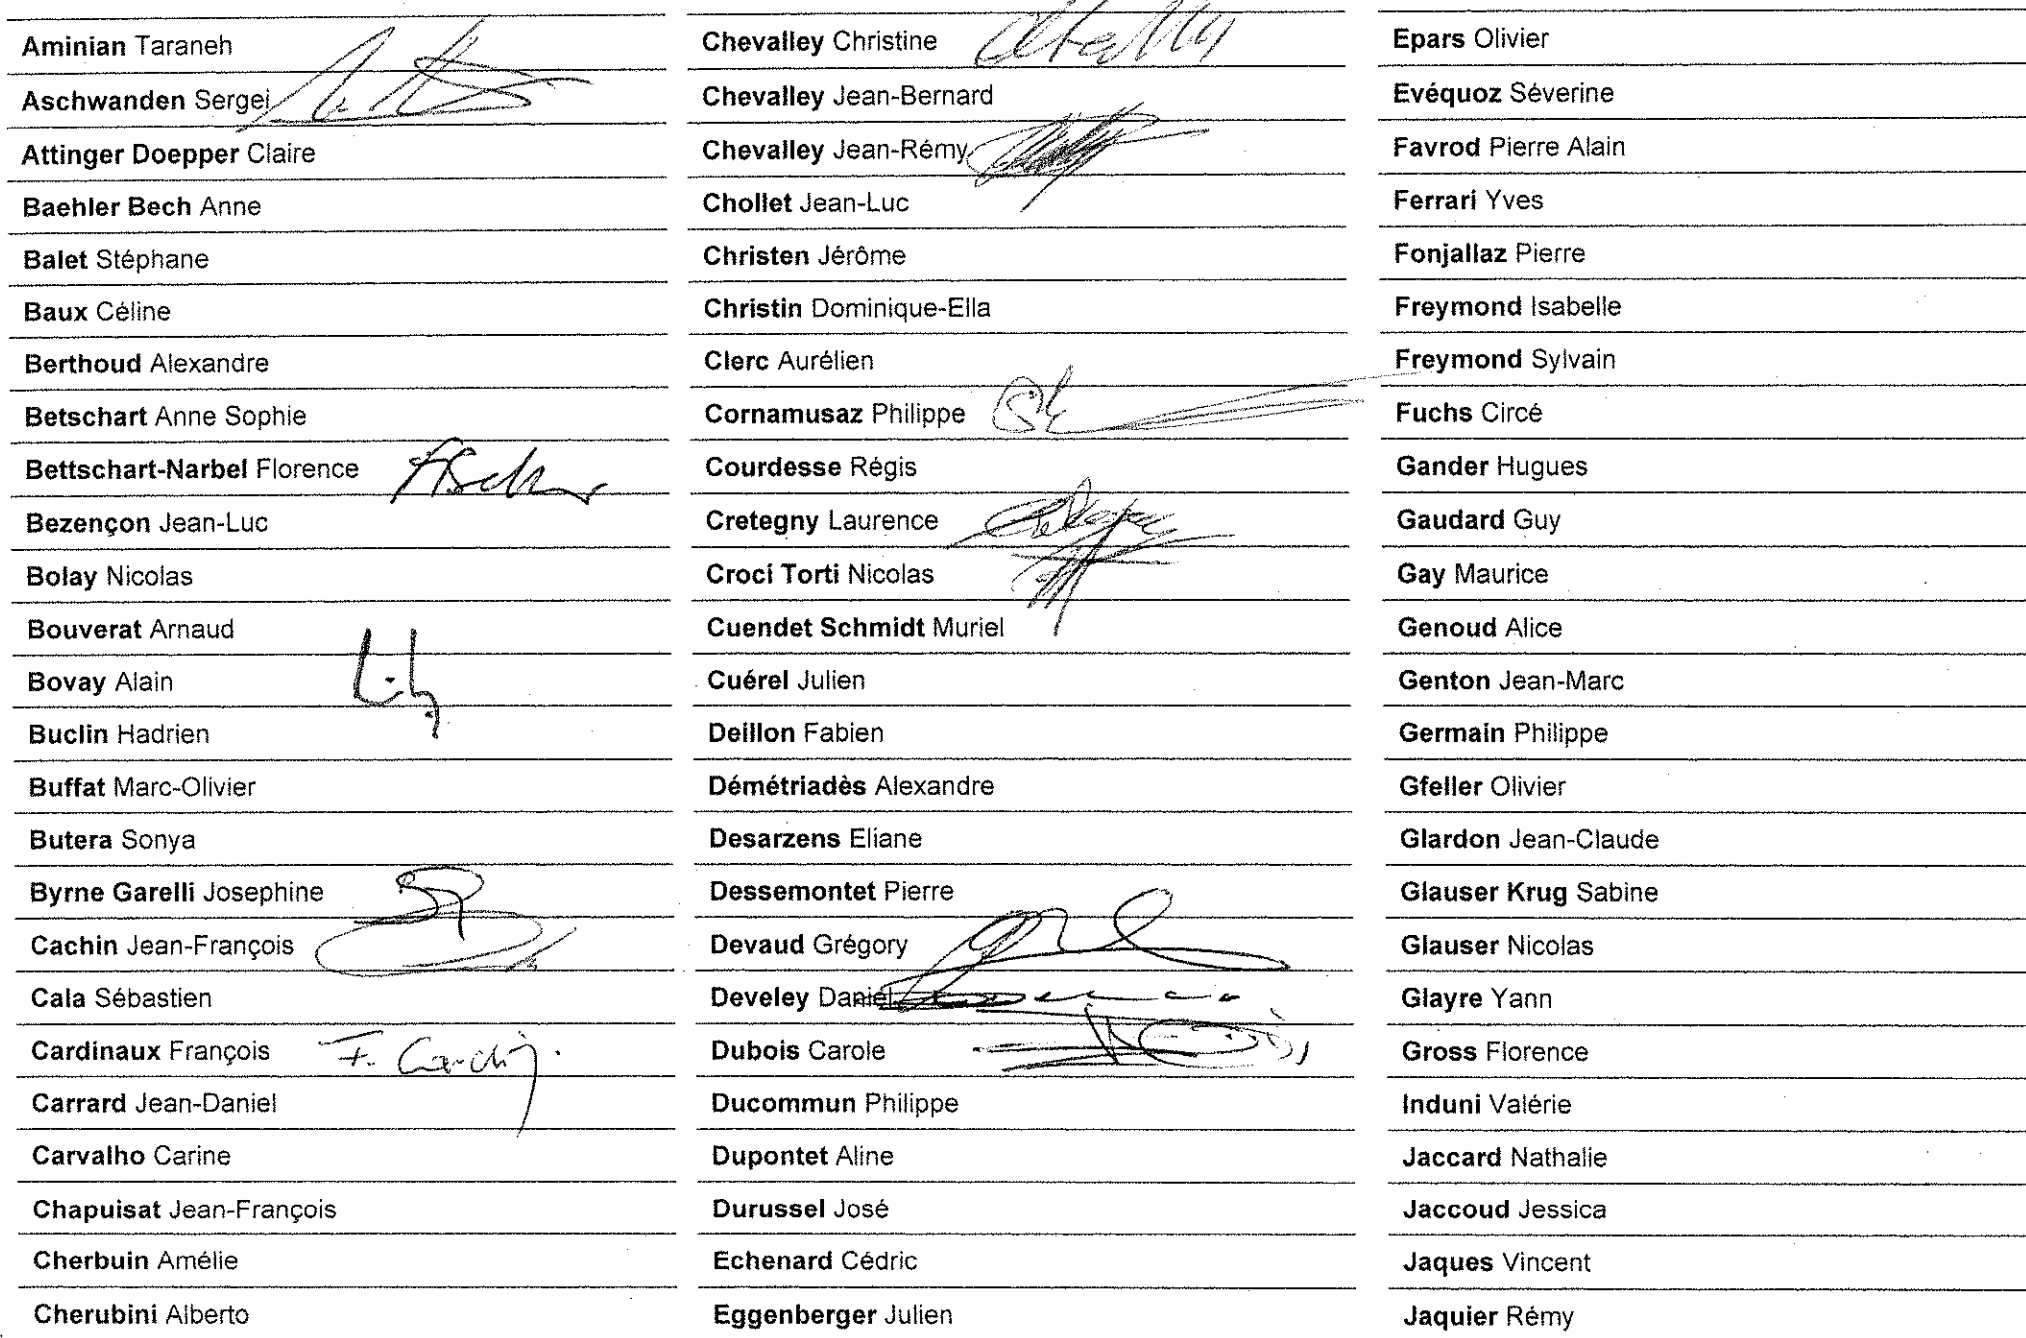 Aminian Taraneh
Aschwanden Sergei
Attinger Doepper Claire
Baehler Bech Anne
Balet Stéphane
Baux Céline
Berthoud Alexandre
Betschart Anne Sophie
Bettschart-Narbel Florence
Bezençon Jean-Luc
Bolay Nicolas
Bouverat Arnaud
Bovay Alain
Buclin Hadrien
Buffat Marc-Olivier
Butera Sonya
Byrne Garelli Josephine
Cachin Jean-François
Cala Sébastien
Cardinaux François F. Cardin
Carrard Jean-Daniel
Carvalho Carine
Chapuisat Jean-François
Cherbuin Amélie
Cherubini Alberto
Chevalley Christine
Chevalley Jean-Bernard
Chevalley Jean-Rémy
Chollet Jean-Luc
Christen Jérôme
Christin Dominique-Ella
Clerc Aurélien
Cornamusaz Philippe
Courdesse Régis
Cretegny Laurence
Croci Torti Nicolas
Cuendet Schmidt Muriel
Cuérel Julien
Deillon Fabien
Démétriadès Alexandre
Desarzens Eliane
Dessemontet Pierre
Devaud Grégory
Develey Daniel
Dubois Carole
Ducommun Philippe
Dupontet Aline
Durussel José
Echenard Cédric
Eggenberger Julien
Epars Olivier
Evéquoz Séverine
Favrod Pierre Alain
Ferrari Yves
Fonjallaz Pierre
Freymond Isabelle
Freymond Sylvain
Fuchs Circé
Gander Hugues
Gaudard Guy
Gay Maurice
Genoud Alice
Genton Jean-Marc
Germain Philippe
Gfeller Olivier
Glardon Jean-Claude
Glauser Krug Sabine
Glauser Nicolas
Glayre Yann
Gross Florence
Induni Valérie
Jaccard Nathalie
Jaccoud Jessica
Jaques Vincent
Jaquier Rémy